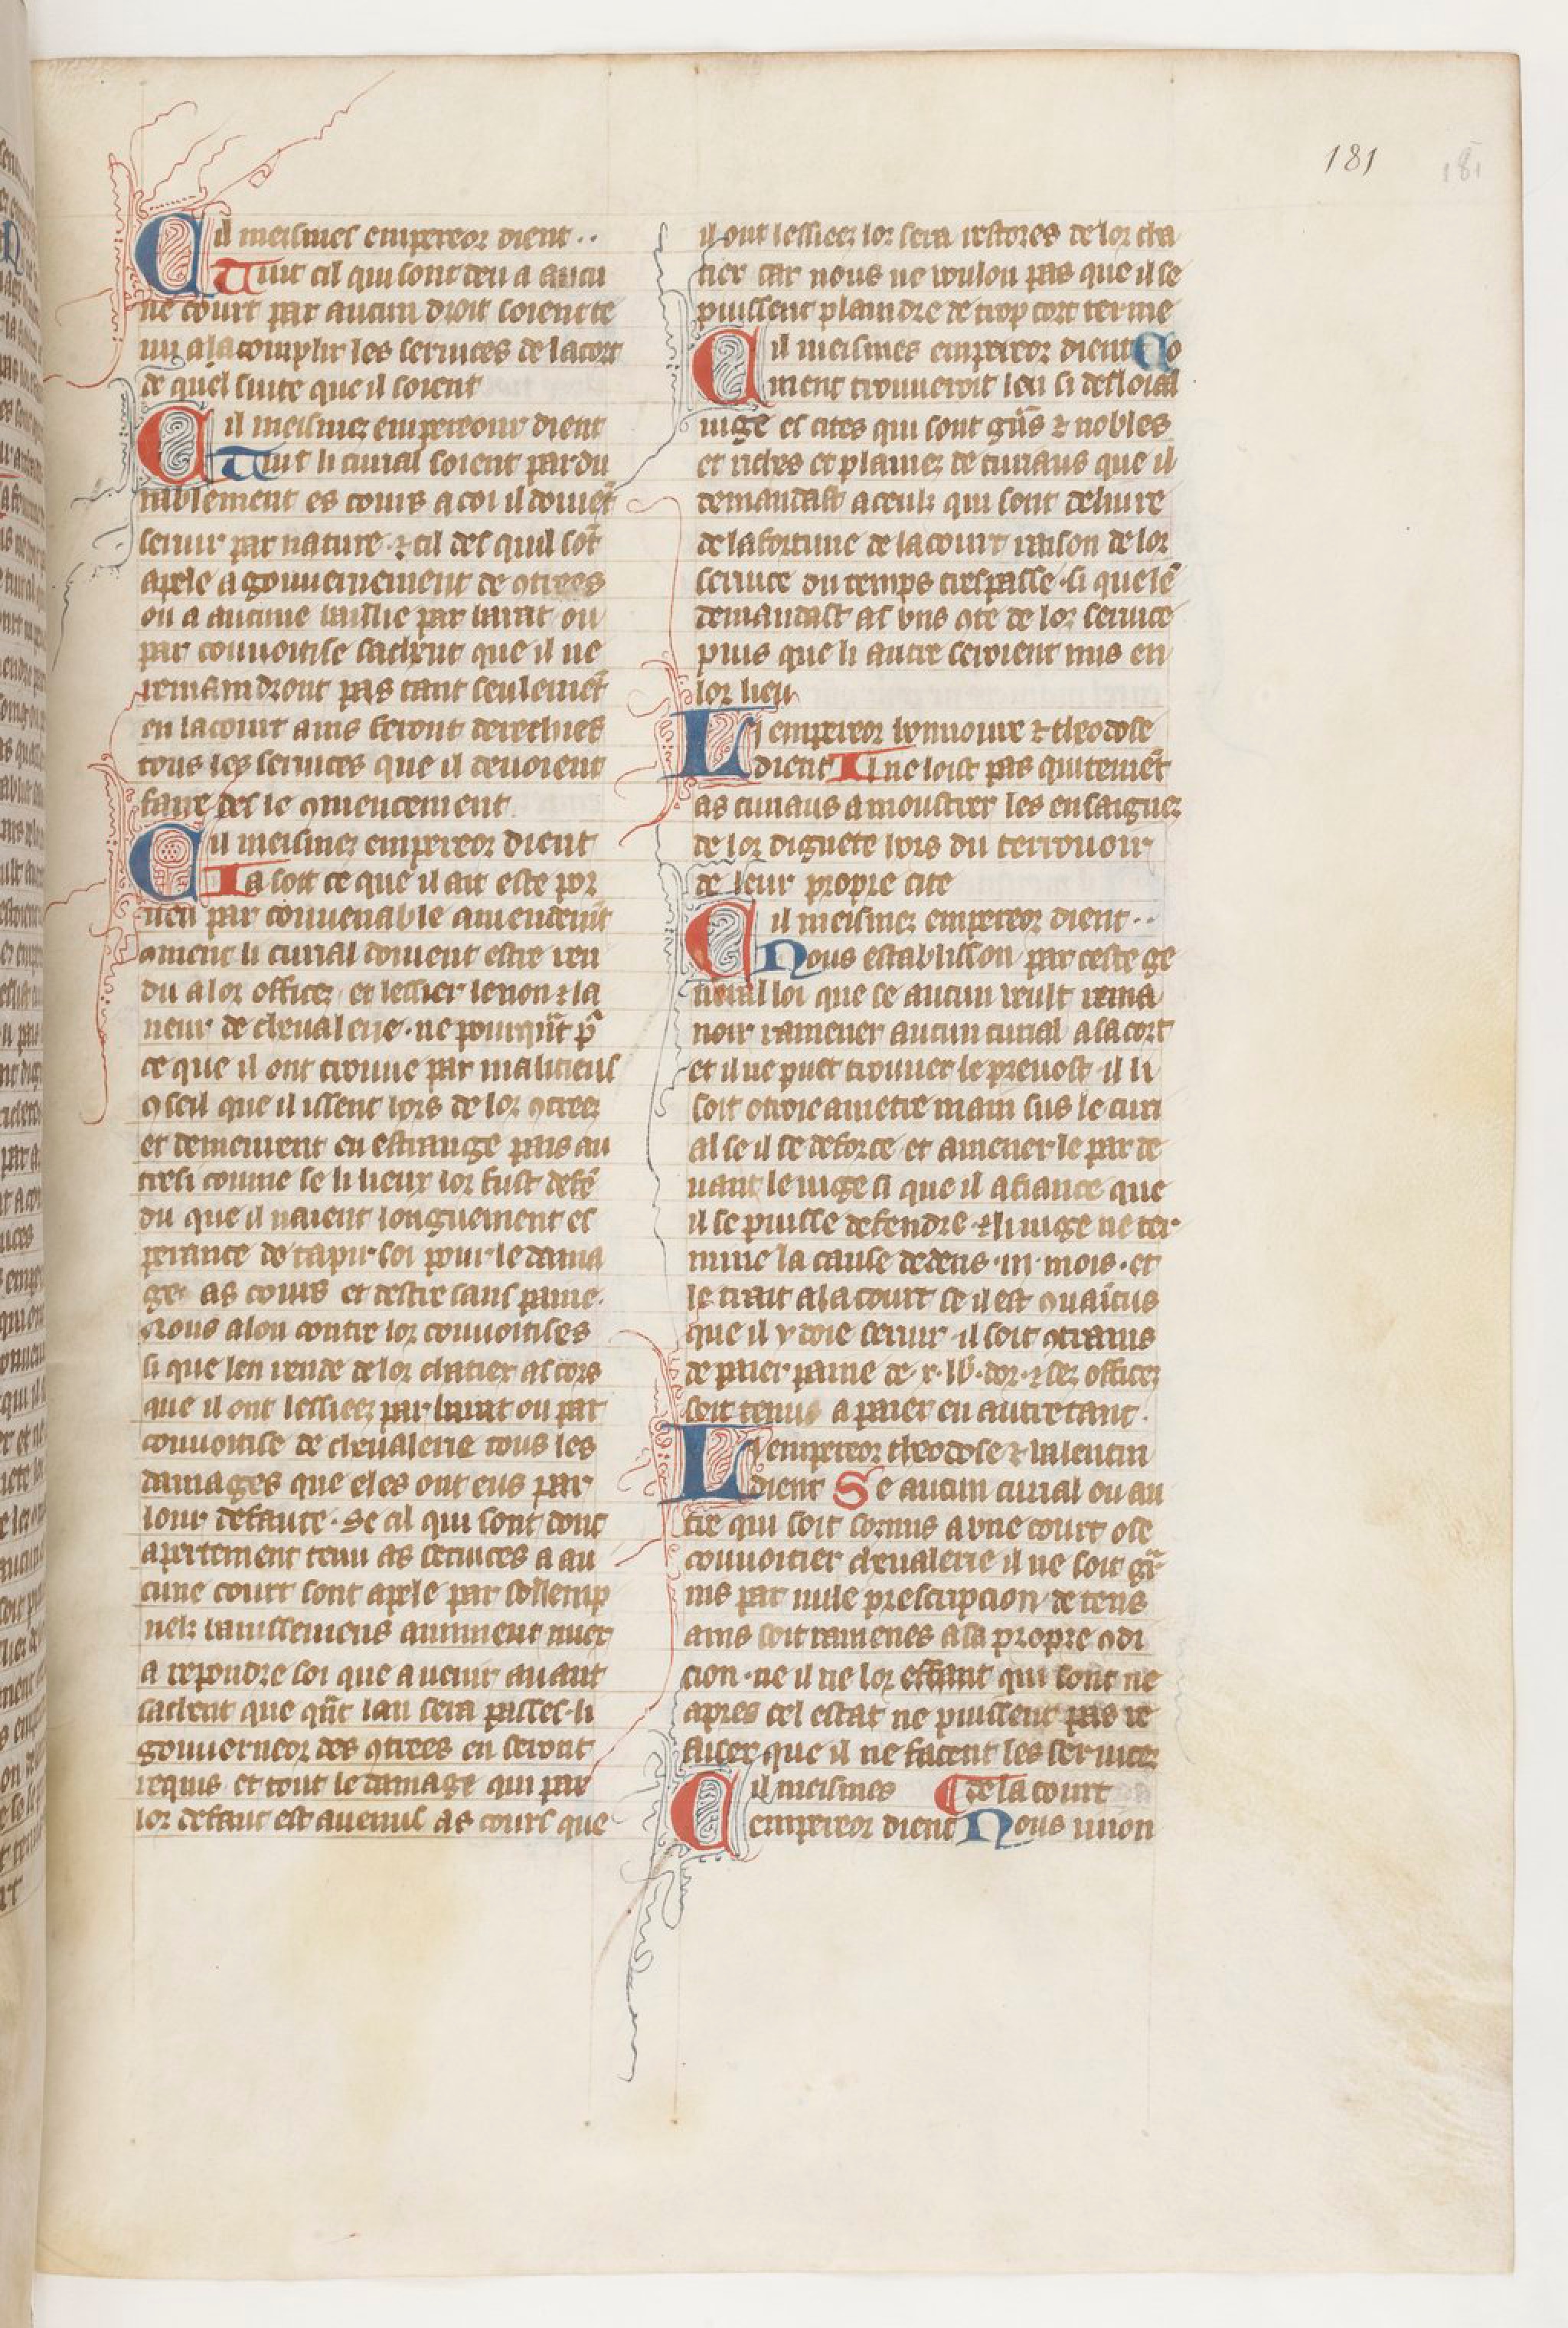 181
181
Cil meismes empereor dient ..
Tuit cil qui sont deu a aucu
ne court par aucun droit soient te
nu a lacomplir les seruices de la cort
de quel suite que il soient
Cil meismez empereour dient
Tuit li curial soient pardu
rablement es cours a coi il doiuẽt
seruir par nature ⁊ cil des quil sõt
apele a gouuernement de ꝯtrees
ou a aucune baillie par barat ou
par couuoitise sachent que il ne
remaindront pas tant seulemẽt
en la court ains feront derechief
tous les seruices que il deuoient
faire des le ꝯmencement
Cil meismez empereor dient
Ia soit ce que il ait este por
ueu par conuenable amendemẽt
ꝯment li curial doiuent estre ren
du a lor officez et lessier le non ⁊ la
neur de cheualerie · ne pourquãt p̃
ce que il ont trouue par malicieus
ꝯseil que il issent hors de lor ꝯtreez
et demeurent en estrange pais au
tresi comme se li lieux lor fust defẽ
du que il naient longuement es
perance de tapir soi pour le dama
ge as cours et destre sans paine ·
Nous alon contre lor couuoitises
si que len rende de lor chatier as cors
que il ont lessiez par barat ou par
couuoitise de cheualerie tous les
damages que eles ont eus par
lour defaute · Se cil qui sont donc
apertement tenu as seruices a au
cune court sont apele par sollemp
nelz banissemens aiument miex
a repondre soi que a uenir auant
sachent que quãt lan sera passes · li
gouuerneor des ꝯtrees en seront
requis et tout le damage qui par
lor defaut est auenus as cours que
il ont lessiez lor sera restores de lor cha
tier car nous ne voulon pas que il se
puissent plaindre de trop cort terme
Cil meismes empereor dient Co
ment trouueroit len si desloial
iuge es cites qui sont grãs ⁊ nobles
et riches et plainez de curiaus que il
demandast a ceulz qui sont deliure
de la fortune de la court raison de lor
seruice du temps trespasse · si que lẽ
demandast as vns ꝯte de lor seruice
puis que li autre seroient mis en
lor lieu
Li empereor honnoire ⁊ theodose
dient Il ne loist pas quitemẽt
as curiaus a moustrer les ensaignez
de lor dignete hors du terrouoir
de leur propre cite
Cil meismez empereor dient ..
Nous establisson par ceste ge
neral loi que se aucun veult rema
noir ramener aucun curial a la cort
et il ne puet trouuer le preuost il li
soit otroie a metre main sus le curi
al se il se deforce et amener le par de
uant le iuge si que il a fiance que
il se puisse defendre ⁊ li iuge ne ter
mine la cause dedens · iii · mois · et
le trait a la court se il est ꝯuaicus
que il y doie seruir · il soit ꝯtrains
de paier paine de · x · lib̃ · dor · ⁊ sez officez
soit tenus a paier en autre tant ·
Li empereor theodose ⁊ valentin
dient Se aucun curial ou au
tre qui soit sormis a vne court ose
couuoitier cheualerie il ne soit gar
nis par nule prescripcion de tens
ains soit ramenes a sa propre ꝯdi
cion · ne il ne lor effant qui sont ne
apres cel estat ne puissent pas re
fuser que il ne facent les seruicez
Cil meismes ¶ de la court
empereor dient Nous uuon